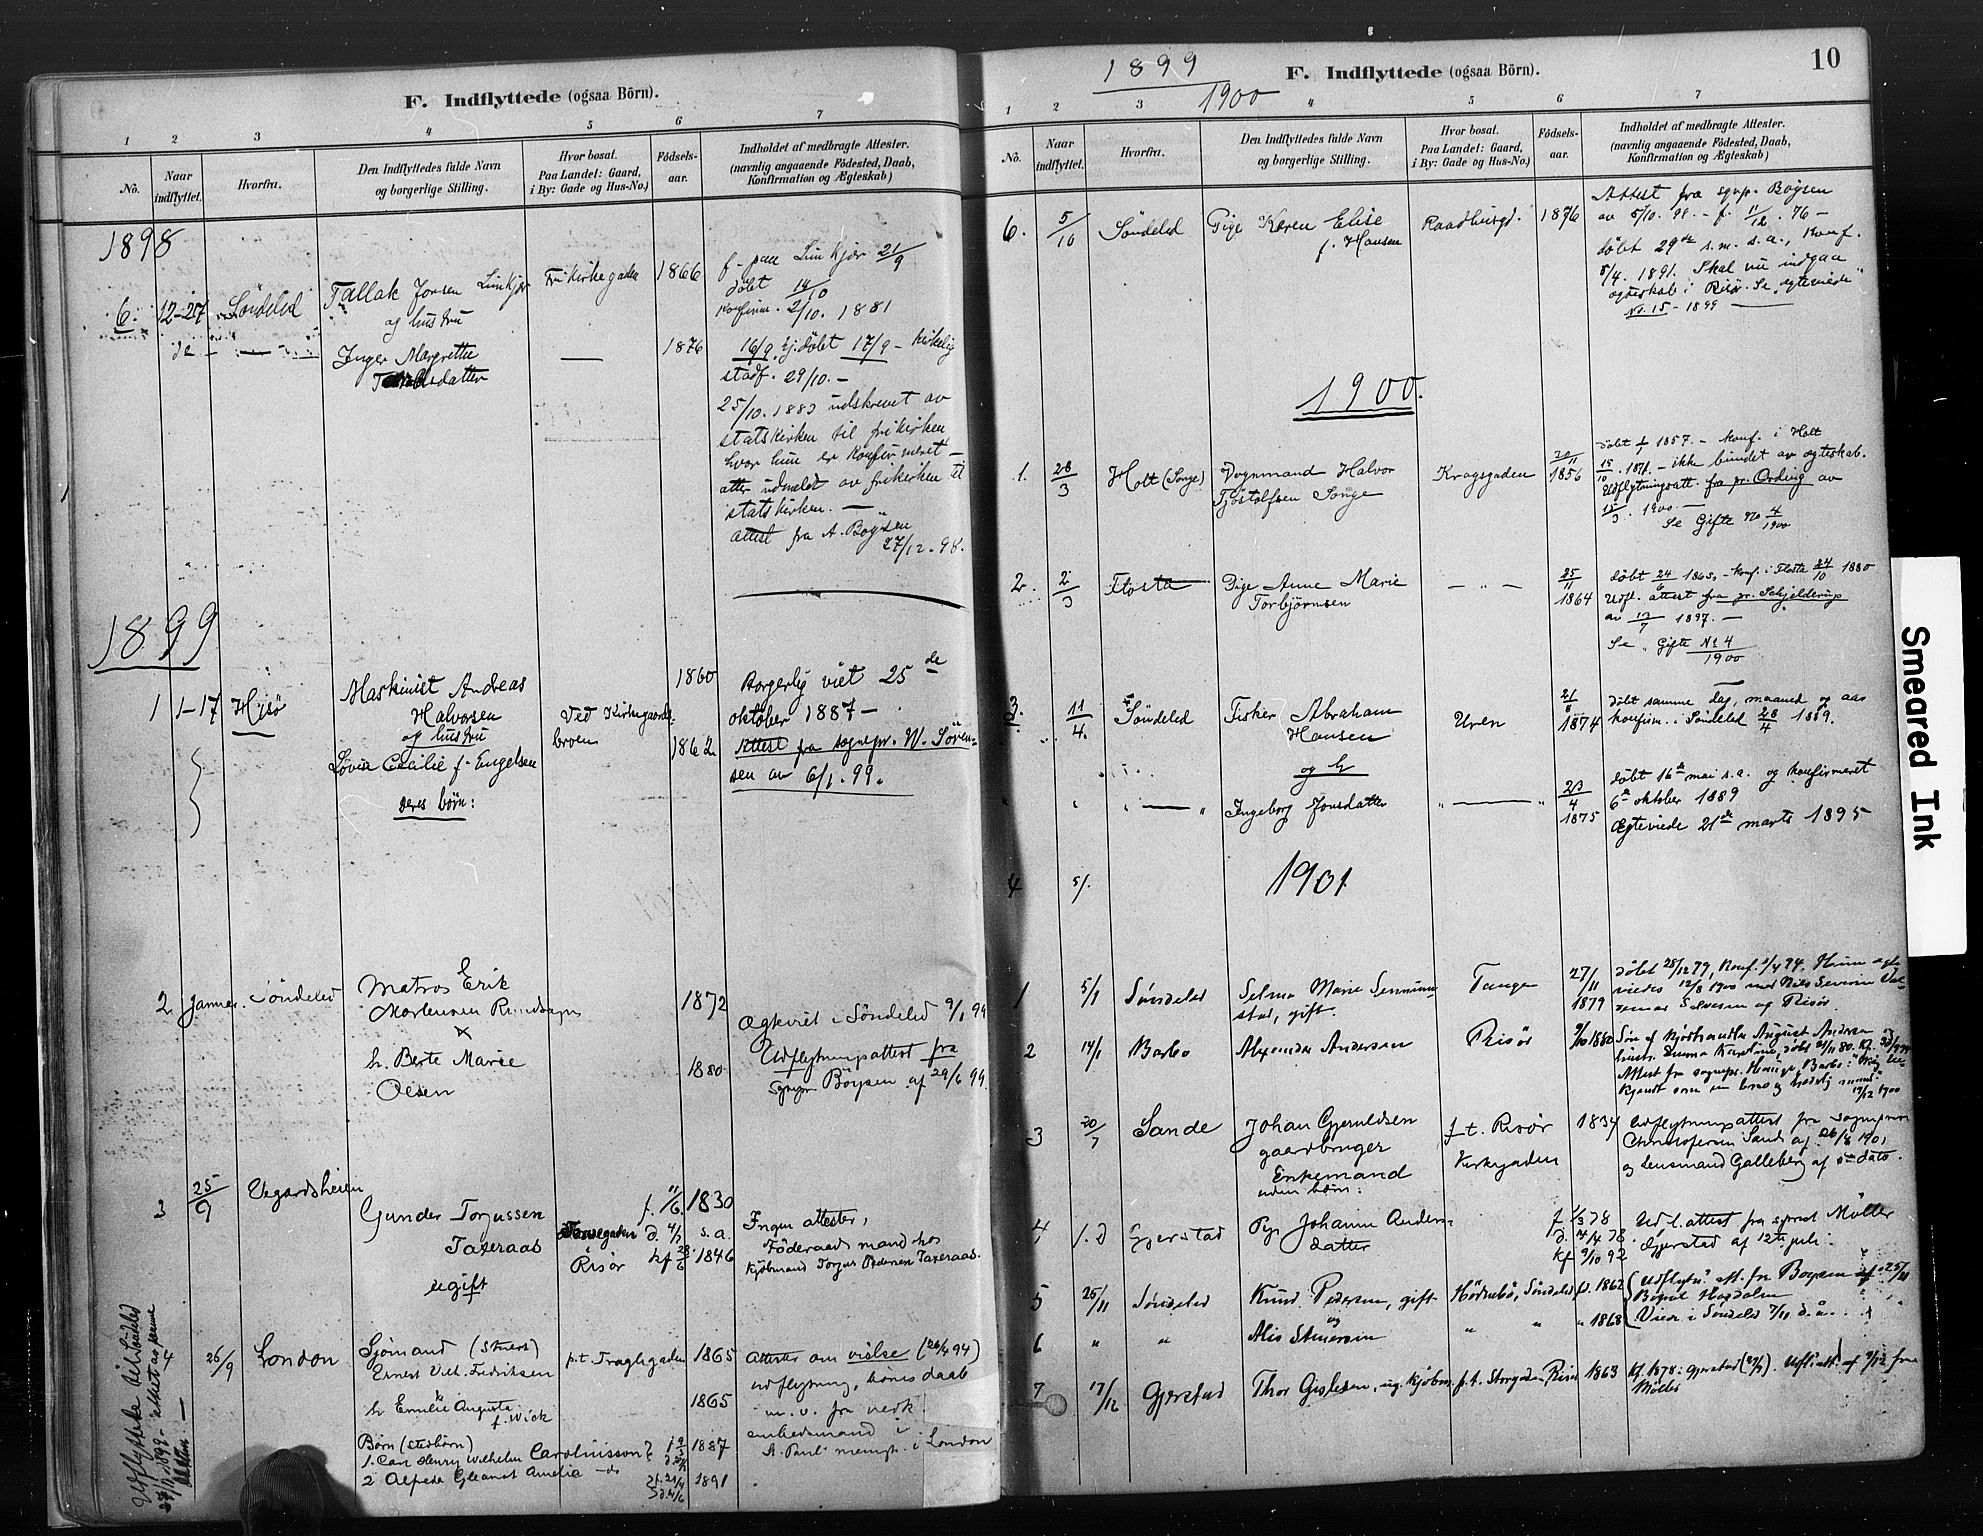 F. Indflyttede (ogsaa Börn).
1 2 3 4 5 6 7
No.
Naar indflyttet.
Hvorfra.
Den Indflyttedes fulde Navn og borgerlige Stilling.
Hvor bosat. Paa Landet: Gaard, i By: Gade og Hus-No.)
Fødsels-aar.
Indholdet af medbragte Attester. (navnlig angaaende Fødested, Daab, Konfirmation og Ægteskab)
1898
6. 12-27 Söndeled Tallak Jonsen Limkjær Frikirkegaden 1866 f. paa Limkjær 21/9
og hustru
döbt 14/10
konfirm. 2/10. 1881
do — Inger Margrethe — 1876 16/9. hj. döbt 17/9 - kirkelig
datter
stadf. 29/10. -
25/10. 1883 udskrevet av
statskirken til frikirken
hvor hun er konfirmeret -
atter udmeldt av frikirken til
statskirken. —
attest fra A. Boysen
27/12. 98.
1899
1 1-17 Hisö Maskinist Andreas Ved Kirkegaards- 1860 Borgerlig viet 25de
Halvorsen broen oktober 1887 -
og hustru 1862 Attest fra sognepr. N. Sören-
Lovise Cecilie f. Engelsen sen av 6/1. 99.
deres börn:
2 Januar. Söndeled Matros Erik 1872
Mortensen
Ægteviet i Söndeled 9/1 99
h. Berte Marie 1880 Udflytningsattest fra
Olsen sognepr Böysen af 29/6 99
3 25/9 Vegardsheien Gunder Torjussen f. 11/6. 1830 Ingen attester,
Taxeraas d. 4/7 s.a. Föderaadsmand hos
Risör kf 28/6 1846 kjöbmand Torjus Pedersen Taxeraas.
ugift
4 26/9 London Sjömand (Stuert) p.t. Tragtegaden 1865 attester om vielse (26/4 94)
Ernest Vilh. Fredriksen udflytning, börnedaab
h Emilie Augusta 1865 m. v. fra vedk.
f. Wick embedsmand i
Börn (stedbörn) St. Paul menigh. i London
1. Carl Henry Wilhelm Carolinsson 1887
2 Alfrede Gleanot Amelia do f. 21/4 1891
d. 4/6
Udflyttede til Söndeled
27/11. 1899 - attest av samme
datum. —
1899
1900
F. Indflyttede (ogsaa Börn).
10
1 2 3 4 5 6 7
No.
Naar indflyttet.
Hvorfra.
Den Indflyttedes fulde Navn og borgerlige Stilling.
Hvor bosat. Paa Landet: Gaard, i By: Gade og Hus-No.)
Fødsels-aar.
Indholdet af medbragte Attester. (navnlig angaaende Födested, Daab, Konfirmation og Ægteskab)
6. 5/10 Söndeled Pige Karen Elise Raadhusgd. 1876 Attest fra sgnp. Boysen
f. Hansen av 5/10. 99. - f. 11/12. 76 -
döbt 29de s.m. s.a., konf.
5/4. 1891. Skal nu indgaa
ægteskab i Risör. Se "ægteviede"
No. 15 - 1899 —
1900.
1. 28/3 Holt (Songe) Vognmand Halvor Kragsgaden 20/11 1856 döbt 1/1 1857. - konf. i Holt
Tjöstolfsen Songe 15/10. 1871. - ikke bundet av ægteskab.
Udflytningsatt. fra pr. Ording av
15/3. 1900. -
Se Gifte No 4/1900
2. 2/3 Flosta Pige Anne Marie — " — 25/11 1864 döbt 24/6 1865, - konf. i Flosta 24/10 1880
Torbjörnsen Udfl. attest fra pr. Schjelderup
av 13/7 1897. -
Se Gifte No 4/1900
3. 11/4. Söndeled Fisker Abraham Uren 21/8 1874 döbt samme dag, maaned og aar
Hansen konfirm. i Söndeled 28/4 1889.
og h
" " — " Ingeborg Jonsdatter " — " 23/4 1875 döbt 16de mai s.a. og konfirmeret
6te oktober 1889
Ægteviede 21de marts 1895
1901
4 5/.
1 5/1 Söndeled Selma Marie Tangen 27/11 1879 döbt 28/12 79, Konf. 94. Hun ægte-
stad, gift. viedes 12/8 1900 med Nils Severin
Salvesen af Risör.
2 14/1 Barbo Alexander Andersen Risör 9/10 1880 Sön af Kjöbhandler August Andersen og
hustr. Emma Karoline, döbt 21/11 80.
Attest fra sognepr. Hannige, Barbo:
kjendt som en brav og hæderlig mand.
19/12 1900
3 20/7 Sande Johan Gjeruldsen p.t. Risör 1834 Udflytningsattest fra sognepræst
gaardbruger Kirkegaden Christofersen Sande af 26/6 1901
Enkemand og Lensmand Galleberg af s. dato.
uden börn.
4 s. D Gjerstad Pige Johanne Anders- f 1/3 78 Udfl. attest fra sprest Möller
datter d. 14/4 78 Gjerstad af 12te juli.
kf 9/10 92
5 25/11 Söndeled Knud Pedersen, gift Hödnebö, Söndeled f. 1862 Udflytn. att. fra Boysen af 25/11
og
6 " " Stenersen " " " 1868 Viede i Söndeled 7/11 d.å.
7 17/12 Gjerstad Thor Gislesen, ug. kjöbm. p.t. Storgaden Risör 1863 Kf. 1878 i Gjerstad. Udfl. att. af 9/12 fra
Möller
Smeared Ink